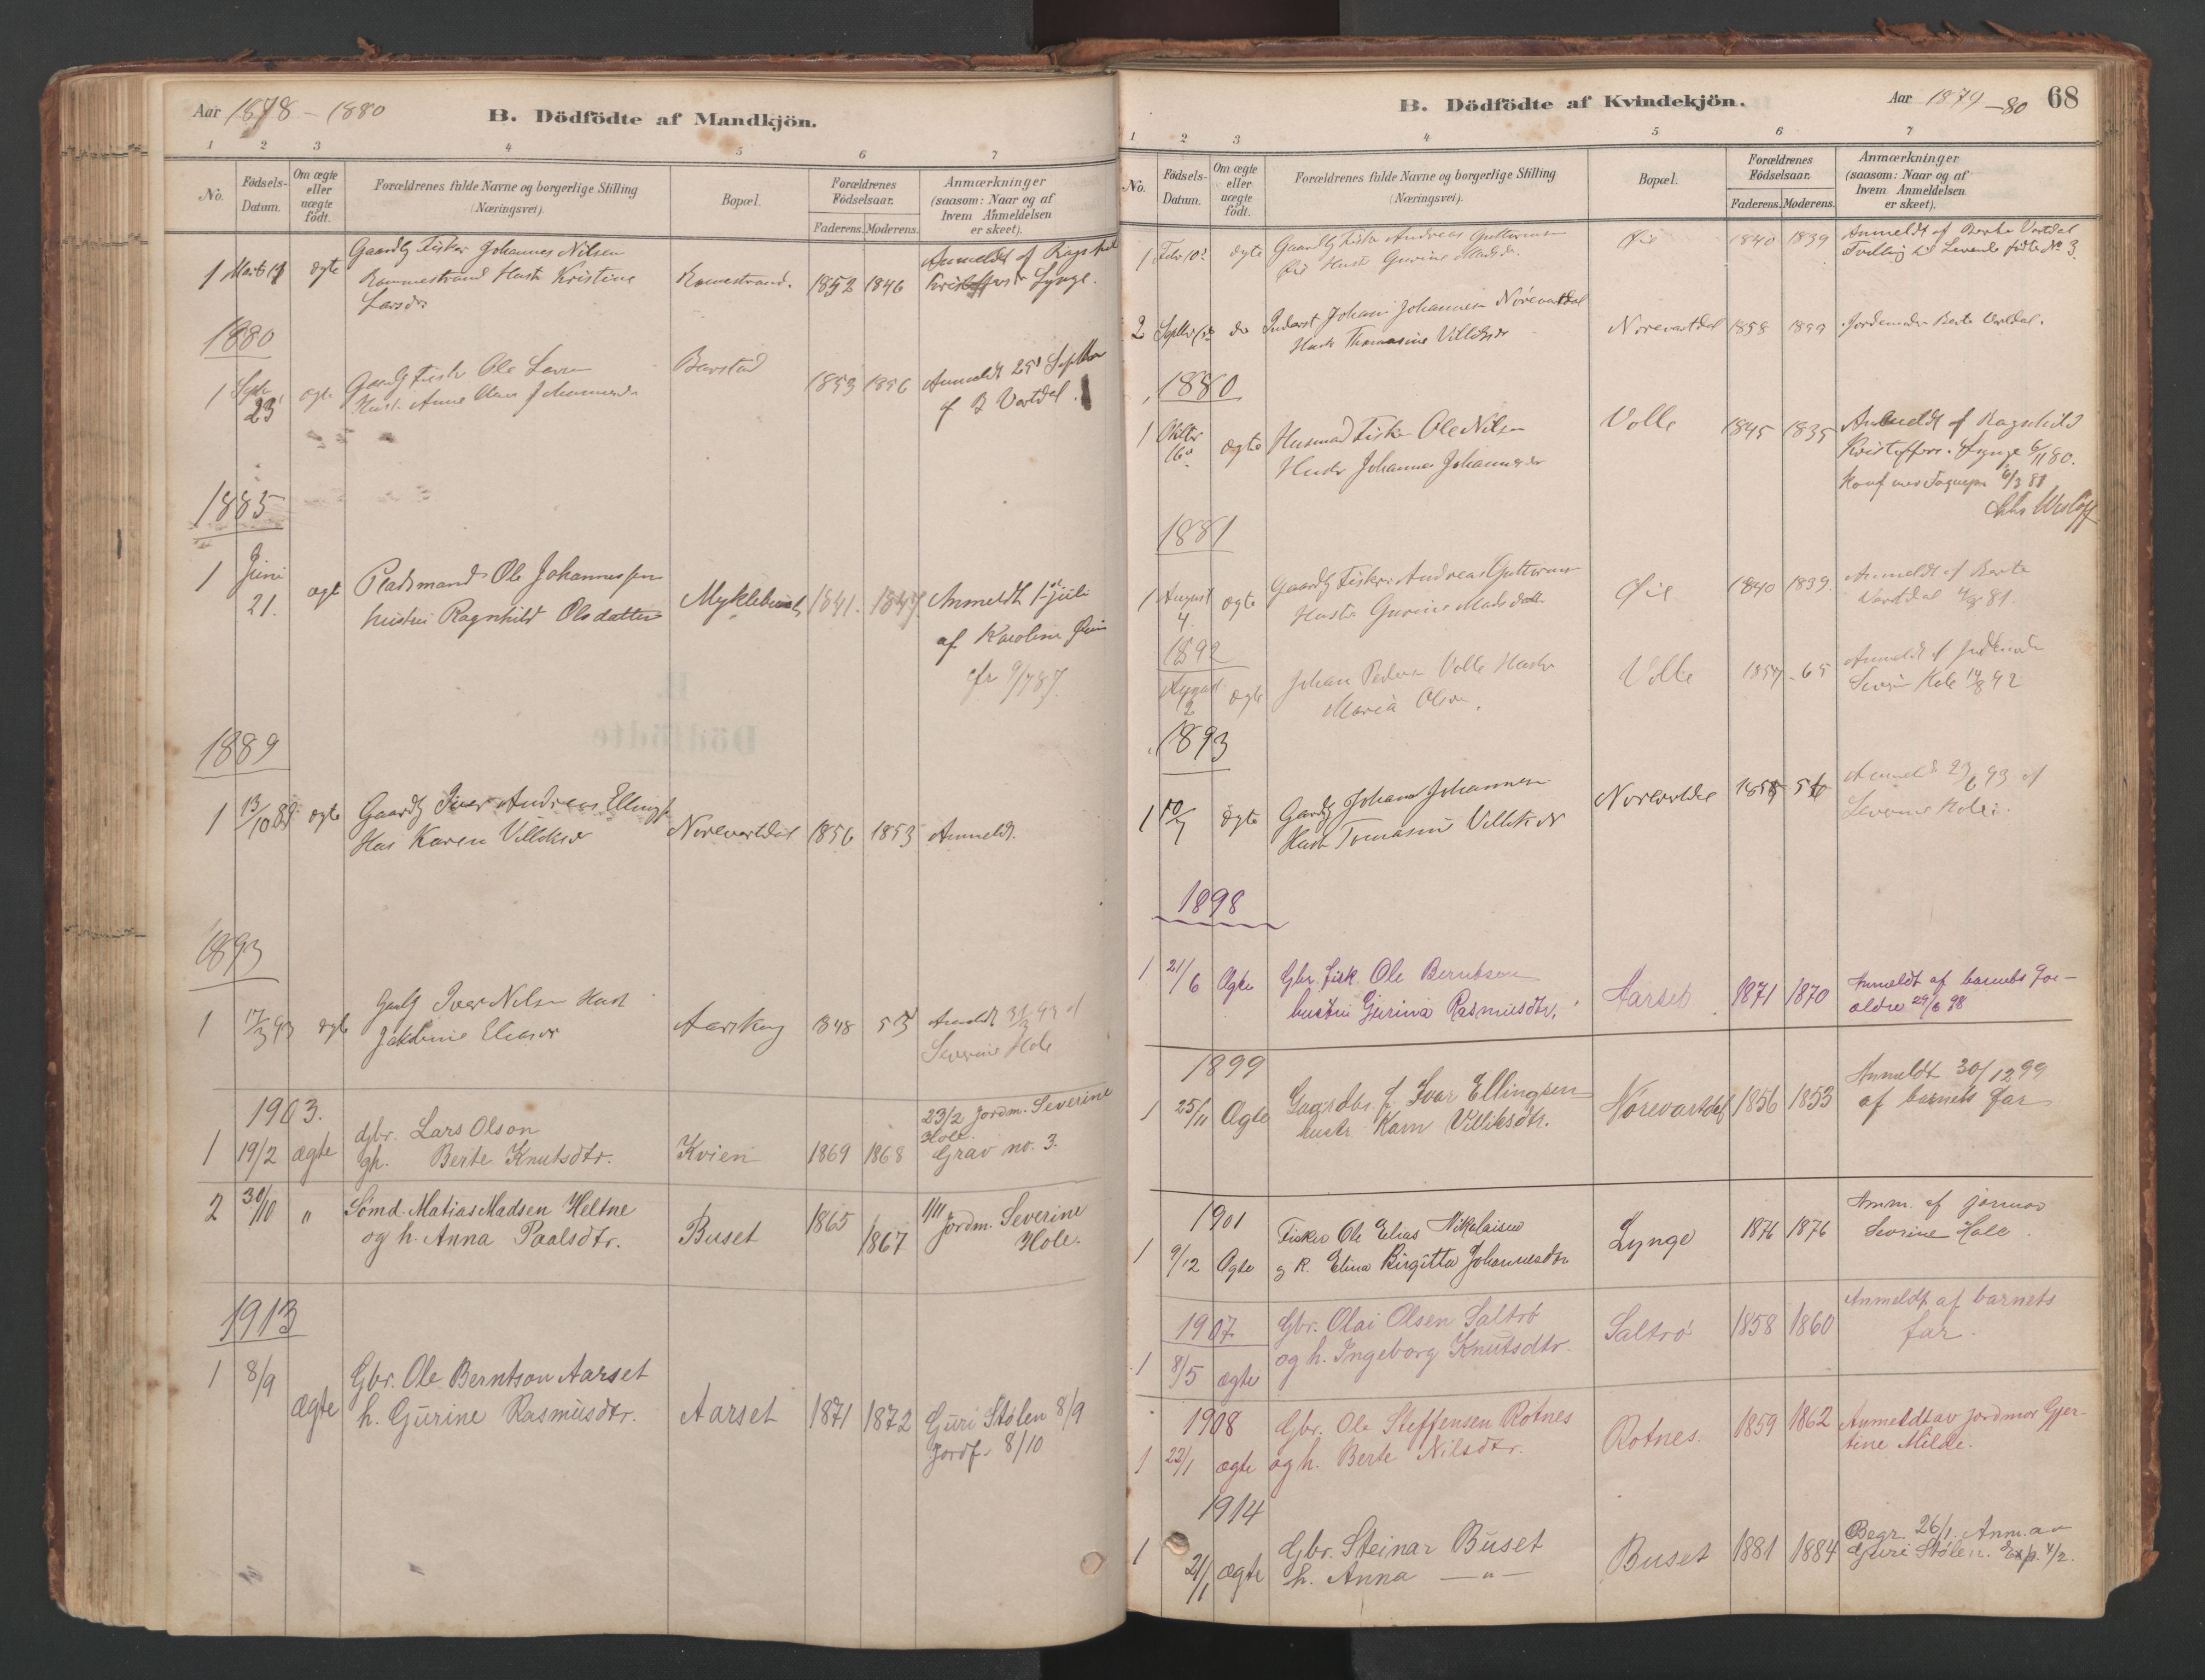 Aar 1878 - 1880
B. Dödfödte af Mandkjön.
1 2 3 4 5 6 7
No.
Födsels-Datum.
Om ægte eller uægte födt.
Forældrenes fulde Navne og borgerlige Stilling (Næringsvei).
Bopæl.
Forældrenes Födselsaar.
Faderens. Moderens.
Anmærkninger (saasom: Naar og af hvem Anmeldelsen er skeet).
1 Marts ægte Gaardbr Fisker Johannes Nilsen
Rammestrand Hustr Kristine
Larsdr
Ramestrand. 1852 1846
Anmeldt af Ragnhild
Kristoffersdr Lynge.
1880
1 Septr 23 ægte Gaardbr Fisker Ole Larsen
Hustr Anne Johannesdr
Barstad 1853 1856
Anmeldt 25d Septbr
af B Vartdal.
1885
1 Juni 21. ægt Pladsmand Ole Johannessen
hustru Ragnhild Olsdatter
Myklebust 1841. 1847.
Anmeldt 1st juli
af Karoline
1889
1 13/10 89 ægte Gaardbr Iver Andreas Ellingsen
Hus Karen Villiksdr
Norevartdal 1856 1853 Anmeldt.
1893
1 17/3 93 ægte Gaardbr Iver Nilsen Hust
Jakobine Eliasdr
Aarskog 1848 53
Anmeldt 31/3 93 af
Severine Hole
1903.
1 19/2 ægte Gbr. Lars Olson
gh. Berte Knutsdtr.
Kvien 1869 1868
23/2 Jordm. Severine
Hole.
Grav no. 3.
2 30/10 " Sømd. Matias Madsen Heltne
og h. Anna Paalsdtr.
Buset 1865 1867
1/11 Jordm. Severine
Hole.
1913
1 8/9 ægte Gbr. Ole Berntson Aarset
h. Gurine Rasmusdtr.
Aarset 1871 1872
Guri Stølen 8/9
Jordf. 8/10
B. Dödfödte af Kvindekjön.
Aar 1879-80 68
1 2 3 4 5 6 7
No.
Födsels-Datum.
Om ægte eller uægte födt.
Forældrenes fulde Navne og borgerlige Stilling (Næringsvei).
Bopæl.
Forældrenes Födselsaar.
Faderens. Moderens.
Anmærkninger (saasom: Naar og af hvem Anmeldelsen er skeet).
1 Febr 10d ægte Gaardbr Fisker Andreas Guttormsen
Øie Hustr Gurine Madsdr.
Øie 1840 1839
Anmeldt af Berte Vartdal
Tvilling til Levende fødte No 3.
2 Septbr do Inderst Johan Johannesen Nórevartdal
Hustr Thomasine Villiksdr
Norevartdal 1858
Jordemoder Berte Vartdal.
1880
1 Oktbr 16d ægte Husmand Fisker Ole Nilsen
Hustr Johanne Johannesdr
Volle 1845 1835
Anmeldt af Ragnhild
Kristoffersd. Lynge 6/11 80.
1881
1 August 4. ægte Gaardbr Fisker Andreas Guttormsen
Hustr Gurine Madsdatter
Øie 1840 1839.
Anmeldt af Berte
Vartdal 4/8 81.
1892
August 2 ægte Johan Pedersen Volle Hustr
Maria Olsdr.
Volle 1857 - 65
Anmeldt af Jordmoder
Severine Hole 14/8 92
1893
1 10/7 ægte Gaardbr Johan Johannesen
Hustr Tomasine Villiksdr
Norevartdal
Anmeldt
Severine Hole.
1898
1 21/6 Ægte Gbr. Fisk. Ole Berntsen
hustru Gjurina Rasmusdtr.
Aarset 1871 1870
Anmeldt af barnets For-
ældre 29/6 98
1899
1 25/11 Ægte Gaardbr. f. Ivar Ellingsen
hustr. Karn Villiksdtr.
Nórevartdal 1856 1853
Anmeldt 30/12 99
af barnets far
1901
1 9/12 Ægte Fisker Ole Elias Nikolaisen
g k. Elina Birgitta Johannesdtr
Lynge 1876 1876
Anm. af jormor
Sevrine Hole.
1907
1 8/5 ægte Gbr. Olai Olsen Saltrö
og h. Ingeborg Knutsdtr.
Saltrö 1858 1860
Anmeldt af barnets
far.
1908
1 22/1 ægte Gbr. Ole Steffensen Rotnes
og h. Berte Nilsdtr.
Rotnes. 1859 1862
Anmeldt av jordmor Gjer-
tine Milde.
1914
1 21/1 ægte Gbr. Steinar Buset
h. Anna — " —
Buset 1881 1884
Begr. 26/1. Anm. av
Guri Stølen. Exp. 4/2.